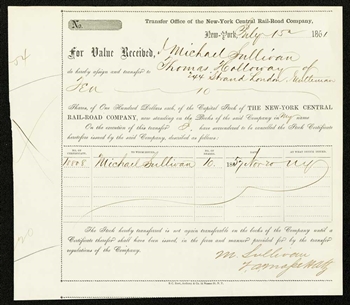 No.
Transfer Office of the New-York Central Rail-Road Company,
New-York, July 15th 1861
For Value Received, I Michael Sullivan
do hereby assign and transfer to Thomas Holloway of
244 Strand London,
Ten 10
Shares, of One Hundred Dollars each, of the Capital Stock of THE NEW-YORK CENTRAL
RAIL-ROAD COMPANY, now standing on the Books of the said Company in My name
On the execution of this transfer I have surrendered to be cancelled the Stock Certificate
heretofore issued by the said Company, described as follows:
Michael Sullivan 10 Nov 20 NY
The Stock hereby transferred is not again transferable on the books of the Company until a
Certificate therefor shall have been issued, in the form and manner provided for by the transfer
regulations of the Company.
M. Sullivan